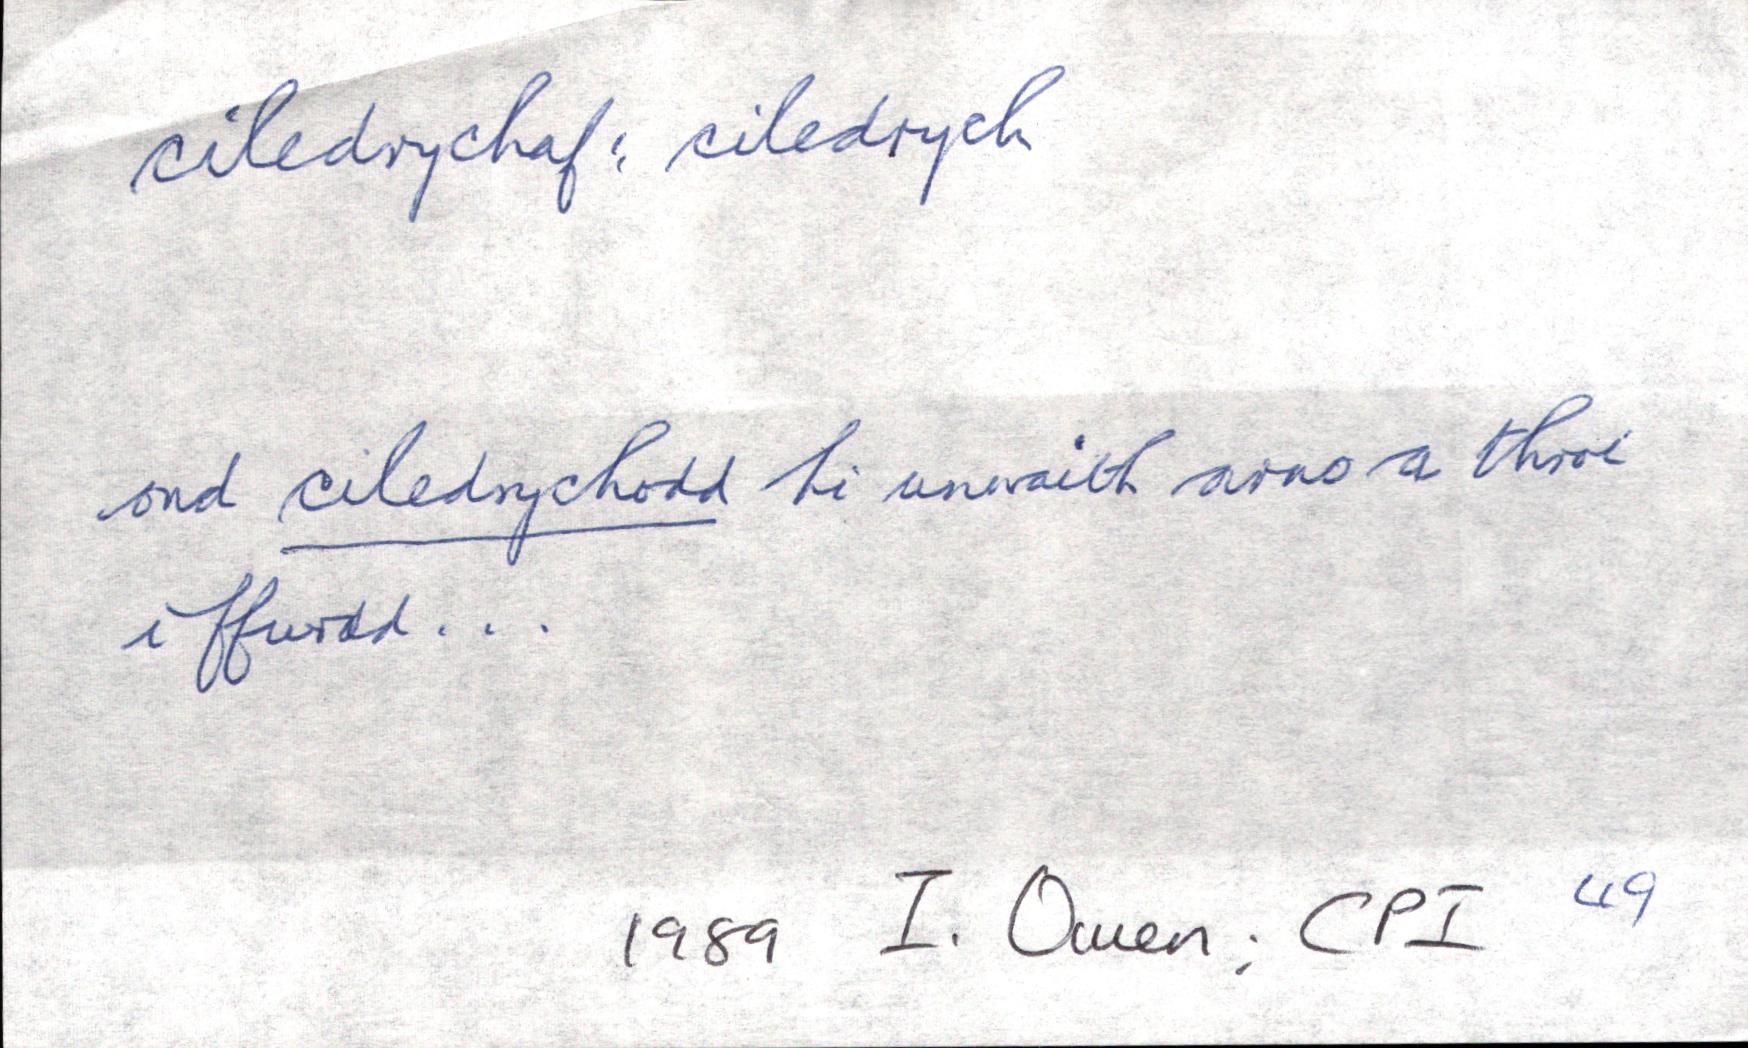 ciledrychaf: ciledrych
ond ciledrychodd hi unwaith arno a throi
i ffwrdd...
1989 I. Owen; CPI 49